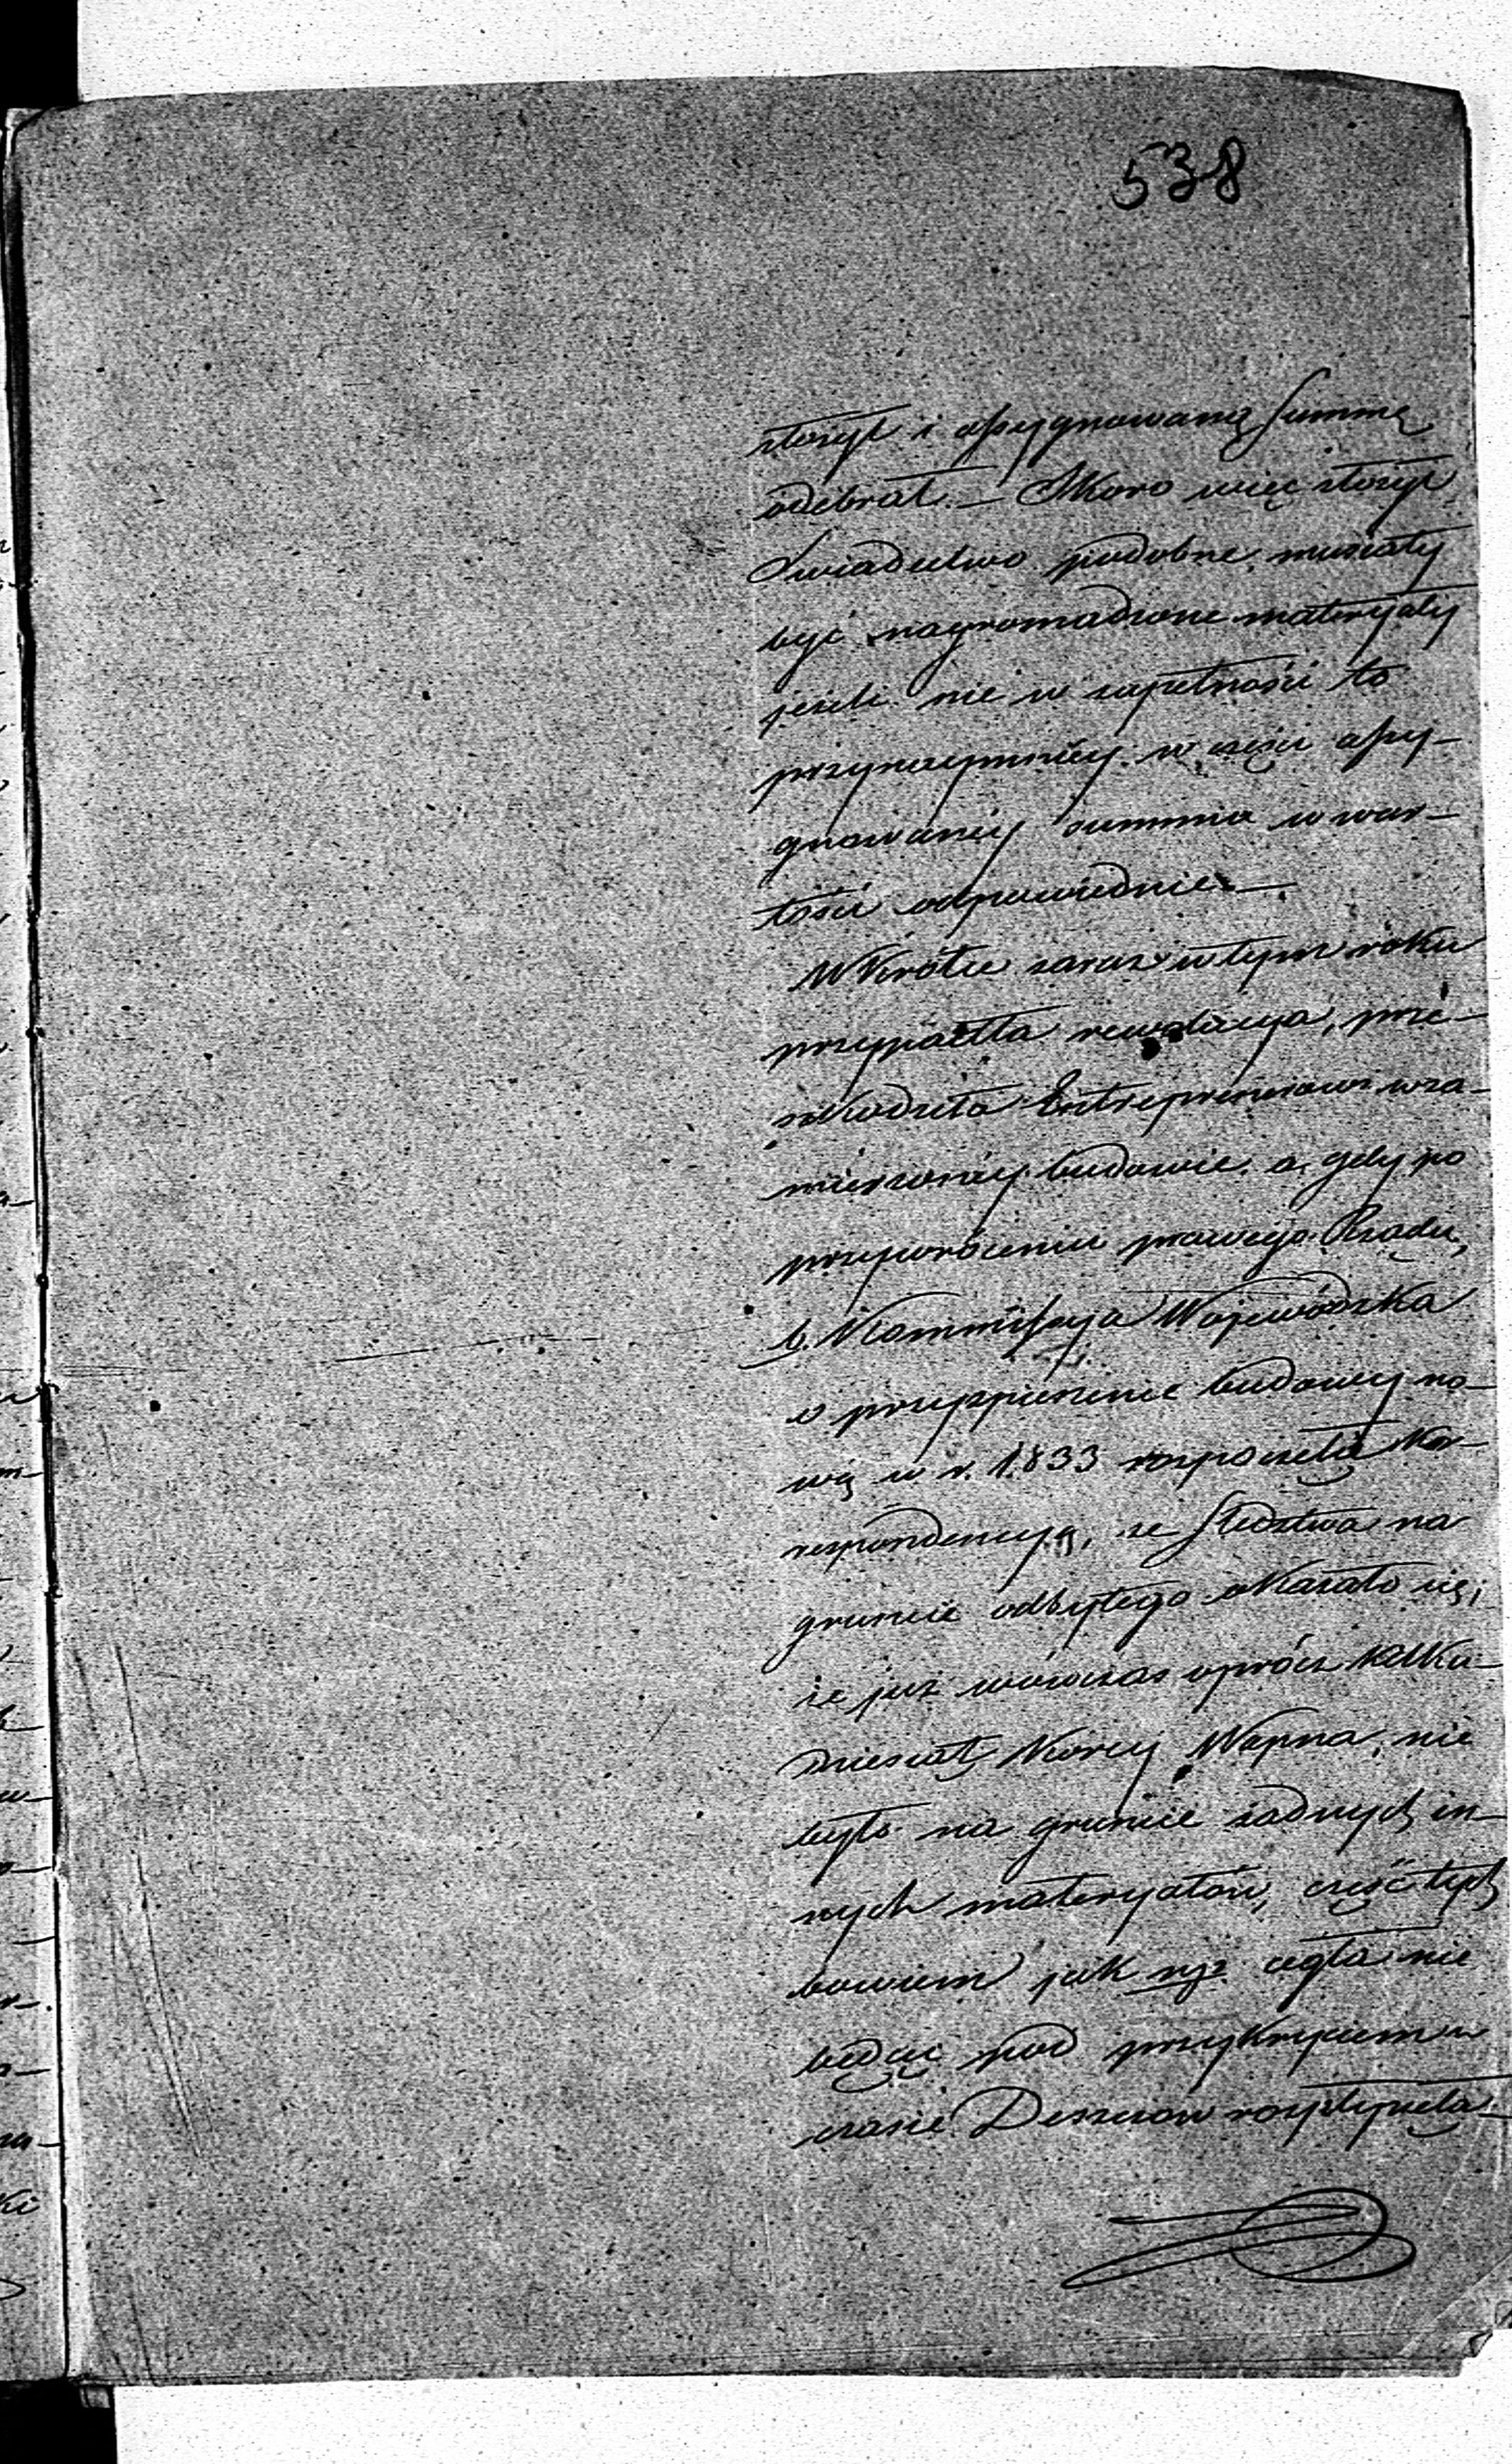 538
złożył i assygnowaną summę
odebrał. — Skoro więc złożył
Swiadectwo podobne, musiały
być nagromadzone materyały
jeżeli nie w zupełności to
przynaymniey w częśći assy-
gnowaney summie w war-
tości odpowiednie. —
Wkrótce zaraz w tym roku
przypadła rewolucya, prze-
szkodziła Entreprenerowi w za-
mierzoney budowie, a gdy po
przywróceniu prawego Rządu,
b. Kommissya Woiewódzka
o przyspieszenie budowy no-
wą w r. 1833 rozpoczęła kor-
respondencyą, ze Sledztwa na
gruncie odbytego okazało się,
że już wówczas oprócz kilku-
dziesiąt Korcy Wapna, nie
było na gruncie żadnych in-
nych materyałów, część tych
bowiem jak np. cegła nie
będąc pod przykryciem w
czasie Deszczow rozpłynęła